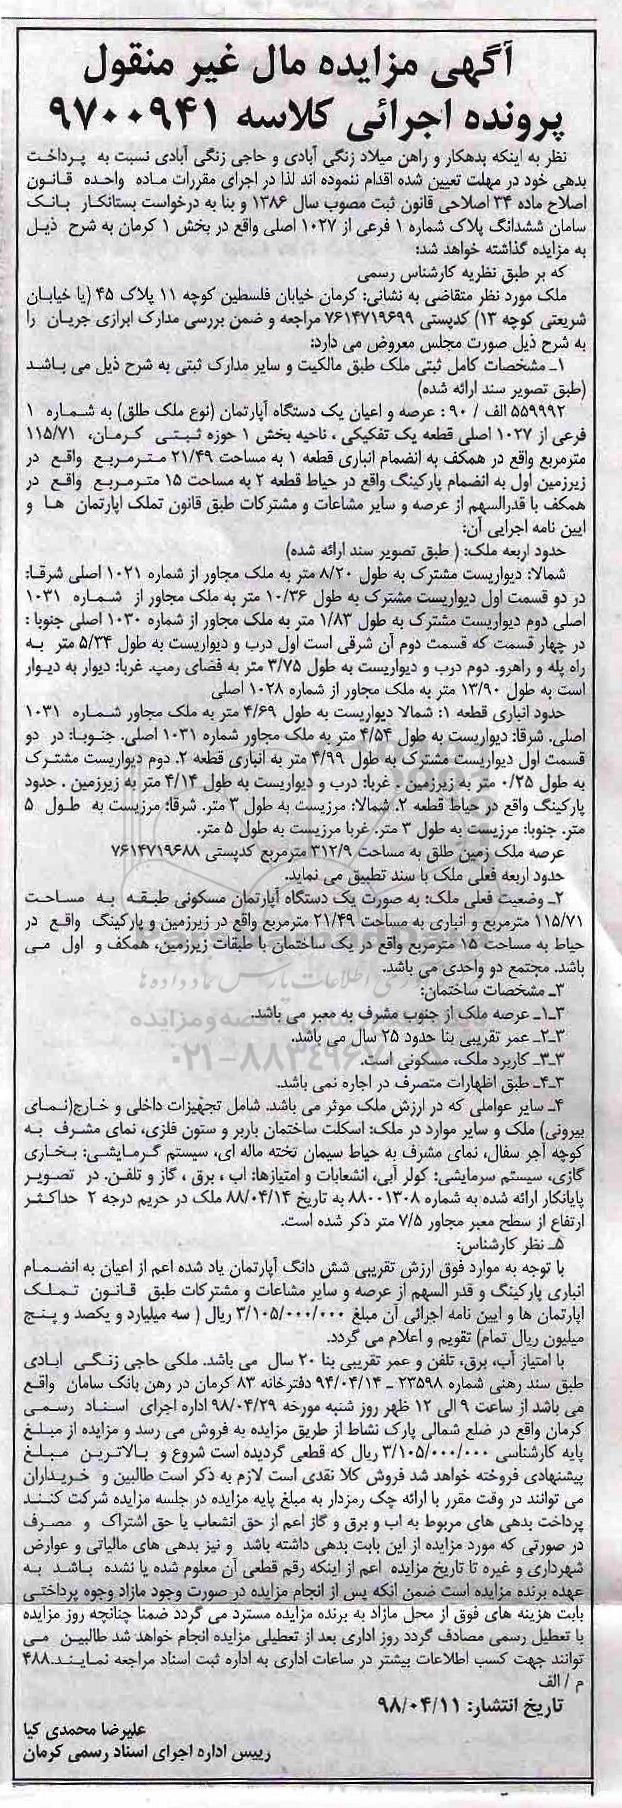 آگهی مزایده مال غیر منقول
پرونده اجرائی کلاسه ۹۷۰۰۹۴۱
نظر به اینکه بدهکار و راهن میلاد زنگی آبادی و حاجی زنگی آبادی نسبت به پرداخت
بدهی خود در مهلت تعیین شده اقدام ننموده اند لذا در اجرای مقررات ماده واحده قانون
اصلاح ماده ۳۴ اصلاحی قانون ثبت مصوب سال ۱۳۸۶ و بنا به درخواست بستانکار بانک
سامان ششدانگ پلاک شماره ۱ فرعی از ۱۰۲۷ اصلی واقع در بخش ۱ کرمان به شرح ذیل
به مزایده گذاشته خواهد شد:
که بر طبق نظریه کارشناس رسمی
ملک مورد نظر متقاضی به نشانی: کرمان خیابان فلسطین کوچه ۱۱ پلاک ۴۵ (یا خیابان
شریعتی کوچه ۱۳) کدپستی ۷۶۱۴۷۱۹۶۹۹ مراجعه و ضمن بررسی مدارک ابرازی جریان را
به شرح ذیل صورت مجلس معروض می دارد:
۱ـ مشخصات کامل ثبتی ملک طبق مالکیت و سایر مدارک ثبتی به شرح ذیل می باشد
(طبق تصویر سند ارائه شده)
۵۵۹۹۹۲ الف / ۹۰ : عرصه و اعیان یک دستگاه آپارتمان (نوع ملک طلق) به شماره ۱
فرعی از ۱۰۲۷ اصلی قطعه یک تفکیکی ، ناحیه بخش ۱ حوزه ثبتی کرمان، ۱۱۵/۷۱
مترمربع واقع در همکف به انضمام انباری قطعه ۱ به مساحت ۲۱/۴۹ مترمربع واقع در
زیرزمین اول به انضمام پارکینگ واقع در حیاط قطعه ۲ به مساحت ۱۵ مترمربع واقع در
همکف با قدرالسهم از عرصه و سایر مشاعات و مشترکات طبق قانون تملک اپارتمان ها و
ایین نامه اجرایی آن:
حدود اربعه ملک: ( طبق تصویر سند ارائه شده)
شمالا: دیواریست مشترک به طول ۸/۲۰ متر به ملک مجاور از شماره ۱۰۲۱ اصلی شرقا:
در دو قسمت اول دیواریست مشترک به طول ۱۰/۳۶ متر به ملک مجاور از شماره ۱۰۳۱
اصلی دوم دیواریست مشترک به طول ۱/۸۳ متر به ملک مجاور از شماره ۱۰۳۰ اصلی جنوبا :
در چهار قسمت که قسمت دوم آن شرقی است اول درب و دیواریست به طول ۵/۳۴ متر به
راه پله و راهرو. دوم درب و دیواریست به طول ۳/۷۵ متر به فضای رمپ. غربا: دیوار به دیوار
است به طول ۱۳/۹۰ متر به ملک مجاور از شماره ۱۰۲۸ اصلی
حدود انباری قطعه ۱: شمالا دیواریست به طول ۴/۶۹ متر به ملک مجاور شماره ۱۰۳۱
اصلی. شرقا: دیواریست به طول ۴/۵۴ متر به ملک مجاور شماره ۱۰۳۱ اصلی. جنوبا: در دو
قسمت اول دیواریست مشترک به طول ۴/۹۹ متر به انباری قطعه ۲. دوم دیواریست مشترک
به طول ۰/۲۵ متر به زیرزمین . غربا: درب و دیواریست به طول ۴/۱۴ متر به زیرزمین . حدود
پارکینگ واقع در حیاط قطعه ۲. شمالا: مرزیست به طول ۳ متر. شرقا: مرزیست به طول ۵
متر. جنوبا: مرزیست به طول ۳ متر. غربا مرزیست به طول ۵ متر.
عرصه ملک زمین طلق به مساحت ۳۱۲/۹ مترمربع کدپستی ۷۶۱۴۷۱۹۶۸۸
حدود اربعه فعلی ملک با سند تطبیق می نماید.
۲ـ وضعیت فعلی ملک: به صورت یک دستگاه آپارتمان مسکونی طبقه به مساحت
۱۱۵/۷۱ مترمربع و انباری به مساحت ۲۱/۴۹ مترمربع واقع در زیرزمین و پارکینگ واقع در
حیاط به مساحت ۱۵ مترمربع واقع در یک ساختمان با طبقات زیرزمین، همکف و اول می
باشد. مجتمع دو واحدی می باشد.
۳ـ مشخصات ساختمان:
۳ـ۱ـ عرصه ملک از جنوب مشرف به معبر می باشد.
۳ـ۲ـ عمر تقریبی بنا حدود ۲۵ سال می باشد.
۳ـ۳ـ کاربرد ملک، مسکونی است.
۳ـ۴ـ طبق اظهارات متصرف در اجاره نمی باشد.
۴ـ سایر عواملی که در ارزش ملک موثر می باشد. شامل تجهیزات داخلی و خارج(نمای
بیرونی) ملک و سایر موارد در ملک: اسکلت ساختمان باربر و ستون فلزی، نمای مشرف به
کوچه آجر سفال، نمای مشرف به حیاط سیمان تخته ماله ای، سیستم گرمایشی: بخاری
گازی، سیستم سرمایشی: کولر آبی، انشعابات و امتیازها: اب ، برق ، گاز و تلفن. در تصویر
پایانکار ارائه شده به شماره ۸۸۰۰۱۳۰۸ به تاریخ ۸۸/۰۴/۱۴ ملک در حریم درجه ۲ حداکثر
ارتفاع از سطح معبر مجاور ۷/۵ متر ذکر شده است.
۵ـ نظر کارشناس:
با توجه به موارد فوق ارزش تقریبی شش دانگ آپارتمان یاد شده اعم از اعیان به انضمام
انباری پارکینگ و قدر السهم از عرصه و سایر مشاعات و مشترکات طبق قانون تملک
اپارتمان ها و ایین نامه اجرائی آن مبلغ ۳/۱۰۵/۰۰۰/۰۰۰ ریال ( سه میلیارد و یکصد و پنج
میلیون ریال تمام) تقویم و اعلام می گردد.
با امتیاز آب، برق، تلفن و عمر تقریبی بنا ۲۰ سال می باشد. ملکی حاجی زنگی ابادی
طبق سند رهنی شماره ۲۳۵۹۸ ـ ۹۴/۰۴/۱۴ دفترخانه ۸۳ کرمان در رهن بانک سامان واقع
می باشد از ساعت ۹ الی ۱۲ ظهر روز شنبه مورخه ۹۸/۰۴/۲۹ اداره اجرای اسناد رسمی
کرمان واقع در ضلع شمالی پارک نشاط از طریق مزایده به فروش می رسد و مزایده از مبلغ
پایه کارشناسی ۳/۱۰۵/۰۰۰/۰۰۰ ریال که قطعی گردیده است شروع و بالاترین مبلغ
پیشنهادی فروخته خواهد شد فروش کلا نقدی است لازم به ذکر است طالبین و خریداران
می توانند در وقت مقرر با ارائه چک رمزدار به مبلغ پایه مزایده در جلسه مزایده شرکت کنند
پرداخت بدهی های مربوط به اب و برق و گاز اعم از حق انشعاب یا حق اشتراک و مصرف
در صورتی که مورد مزایده از این بابت بدهی داشته باشد و نیز بدهی های مالیاتی و عوارض
شهرداری و غیره تا تاریخ مزایده اعم از اینکه رقم قطعی آن معلوم شده یا نشده باشد به
عهده برنده مزایده است ضمن انکه پس از انجام مزایده در صورت وجود مازاد وجوه پرداختی
بابت هزینه های فوق از محل مازاد به برنده مزایده مسترد می گردد ضمنا چنانچه روز مزایده
با تعطیل رسمی مصادف گردد روز اداری بعد از تعطیلی مزایده انجام خواهد شد طالبین می
توانند جهت کسب اطلاعات بیشتر در ساعات اداری به اداره ثبت اسناد مراجعه نمایند.۴۸۸
م / الف
تاریخ انتشار: ۹۸/۰۴/۱۱
علیرضا محمدی کیا
رییس اداره اجرای اسناد رسمی کرمان